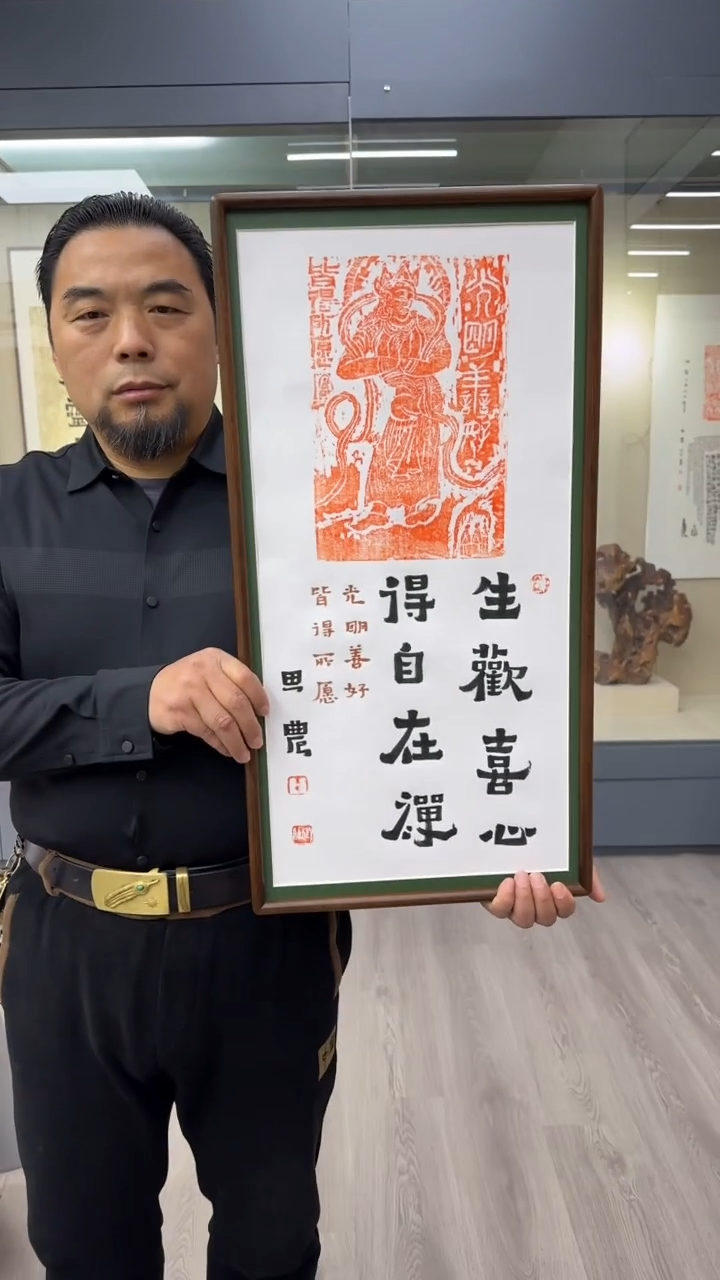 光明善好
皆得所愿
生歡喜心
得自在禪
光明善好
皆得所愿
思農